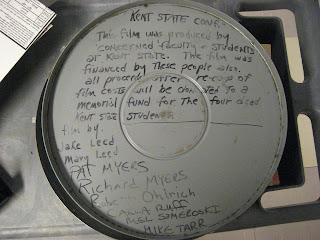 KENT STATE CONF.
This film was produced by
concerned faculty + students
at Kent State. The film was
financed by these people also.
all proceeds after recoup of
film costs will be donated to a
memorial fund for the four dead
Kent State students
film by.
Jake Leed
Mary Leed
PAT MYERS
Richard MYERS
Robert Ohlrich
RUFF
MEL SOMEROSKI
MIKE TARR